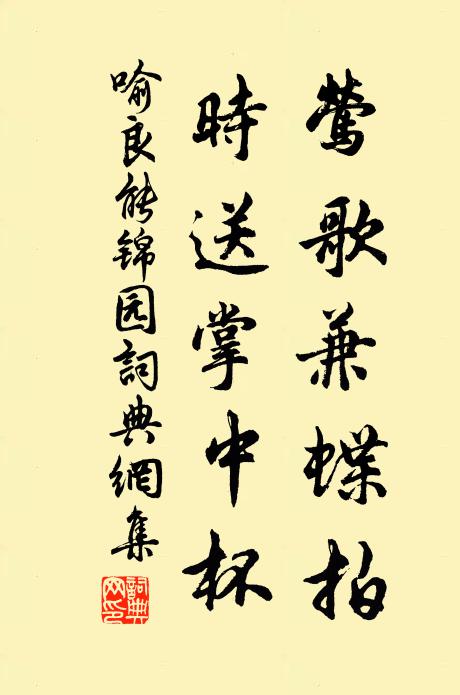 鶯歌兼蝶拍
時送掌中杯
喻良能锦园詞典網集
詞典
网印